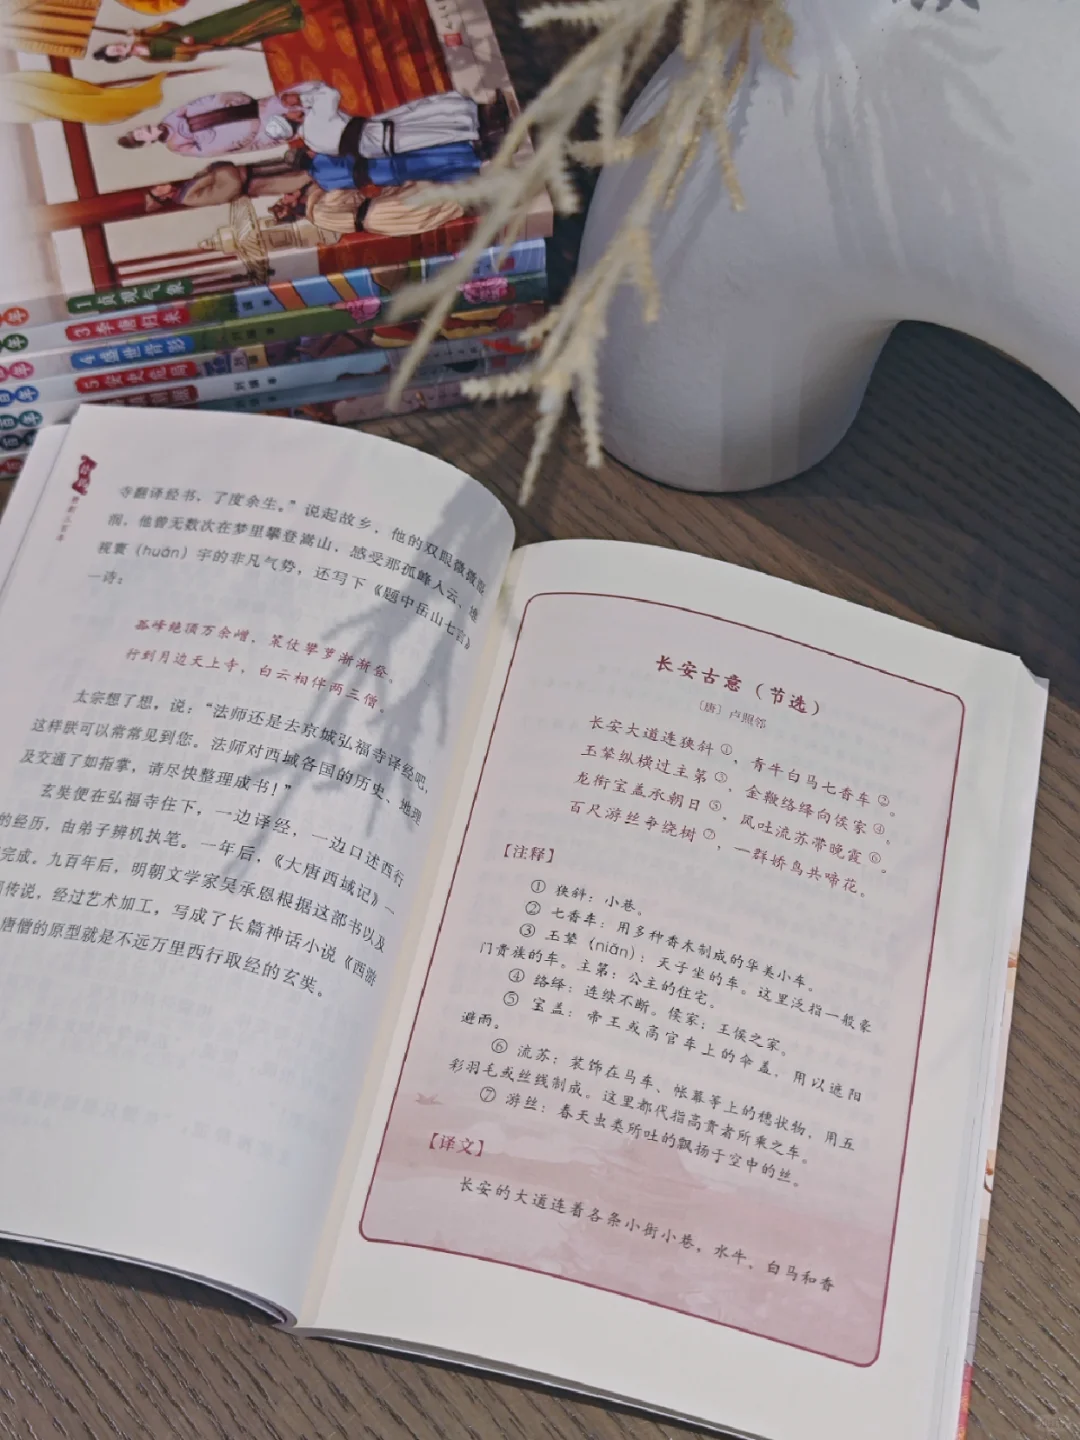 1贞观气象
3李唐归来
4盛世背影
5安史危局
寺翻译经书，了度余生。”说起故乡，他的双眼微微湿
润，他曾无数次在梦里攀登嵩山，感受那孤峰入云、
视寰（huán）宇的非凡气势，还写下《题中岳山七言》
一诗：
孤峰绝顶万余嶒，策仗攀萝渐渐登。
行到月边天上寺，白云相伴两三僧。
太宗想了想，说：“法师还是去京城弘福寺译经吧，
这样朕可以常常见到您。法师对西域各国的历史、地理
及交通了如指掌，请尽快整理成书！”
玄奘便在弘福寺住下，一边译经，一边口述西行
的经历，由弟子辨机执笔。一年后，《大唐西域记》
完成。九百年后，明朝文学家吴承恩根据这部书以及
传说，经过艺术加工，写成了长篇神话小说《西游
唐僧的原型就是不远万里西行取经的玄奘。
长安古意（节选）
〔唐〕卢照邻
长安大道连狭斜①，青牛白马七香车②。
玉辇纵横过主第③，金鞭络绎向侯家④。
龙衔宝盖承朝日⑤，凤吐流苏带晚霞⑥。
百尺游丝争绕树⑦，一群娇鸟共啼花。
【注释】
① 狭斜：小巷。
② 七香车：用多种香木制成的华美小车。
③ 玉辇（niǎn）：天子坐的车。这里泛指一般豪
门贵族的车。主第：公主的住宅。
④ 络绎：连续不断。侯家：王侯之家。
⑤ 宝盖：帝王或高官车上的伞盖，用以遮阳
避雨。
⑥ 流苏：装饰在马车、帐幕等上的穗状物，用五
彩羽毛或丝线制成。这里都代指高贵者所乘之车。
⑦ 游丝：春天虫类所吐的飘扬于空中的丝。
【译文】
长安的大道连着各条小街小巷，水牛、白马和香